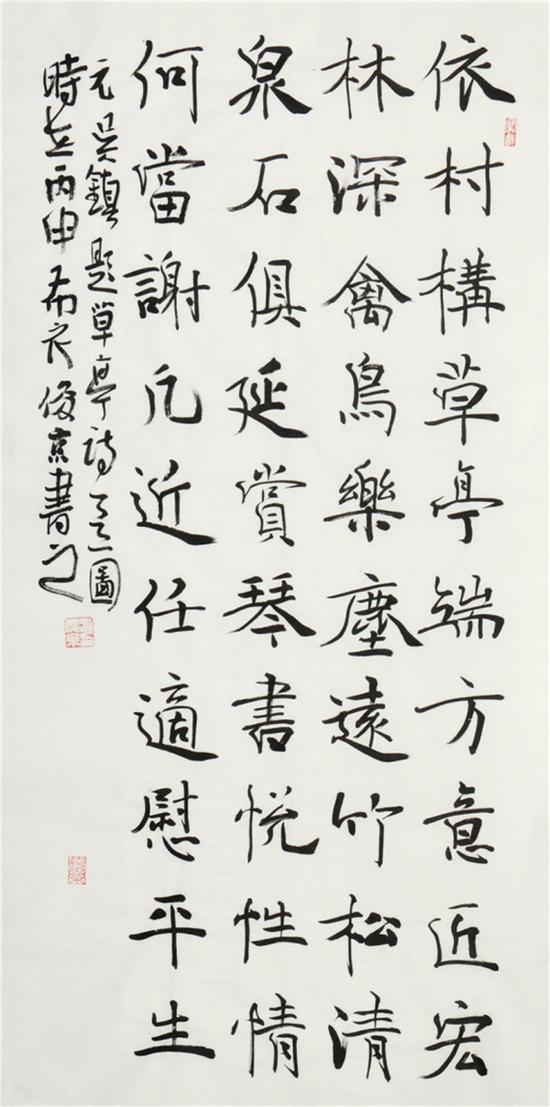 依村構草亭端方意近宏
林深禽鳥樂塵遠竹松清
泉石俱延賞琴書悦性情
何當謝凡近任適慰平生
元吳鎮題草亭詩圖
時在丙申布衣俊京書之